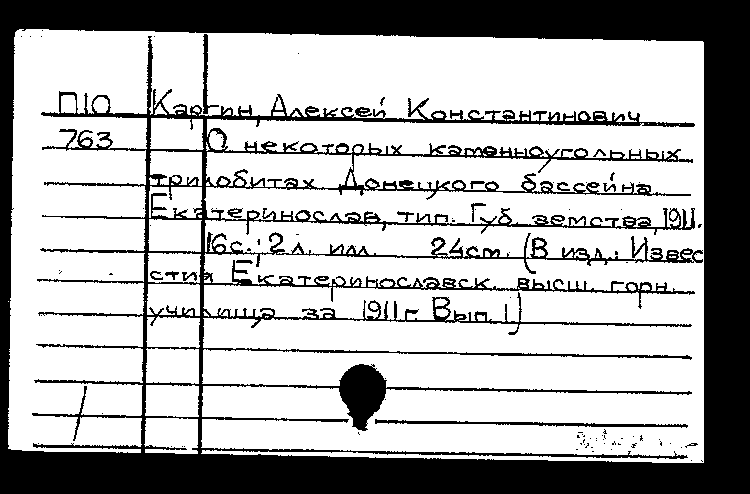 П10 Каргин, Алексей Константинович
763 О некоторых каменноугольных
трилобитах Донецкого бассейна.
Екатеринослав, тип. Губ. земства, 1911.
16с.; 2 л. илл. 24см. (В изд.: Извес
стия Екатеринославск. высш. горн.
училища за 1911г. Вып. 1)